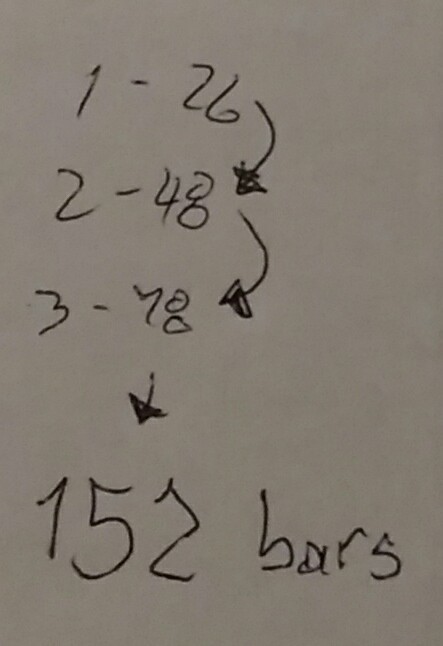 1 - 26
2 - 48
3 - 78
152 bars